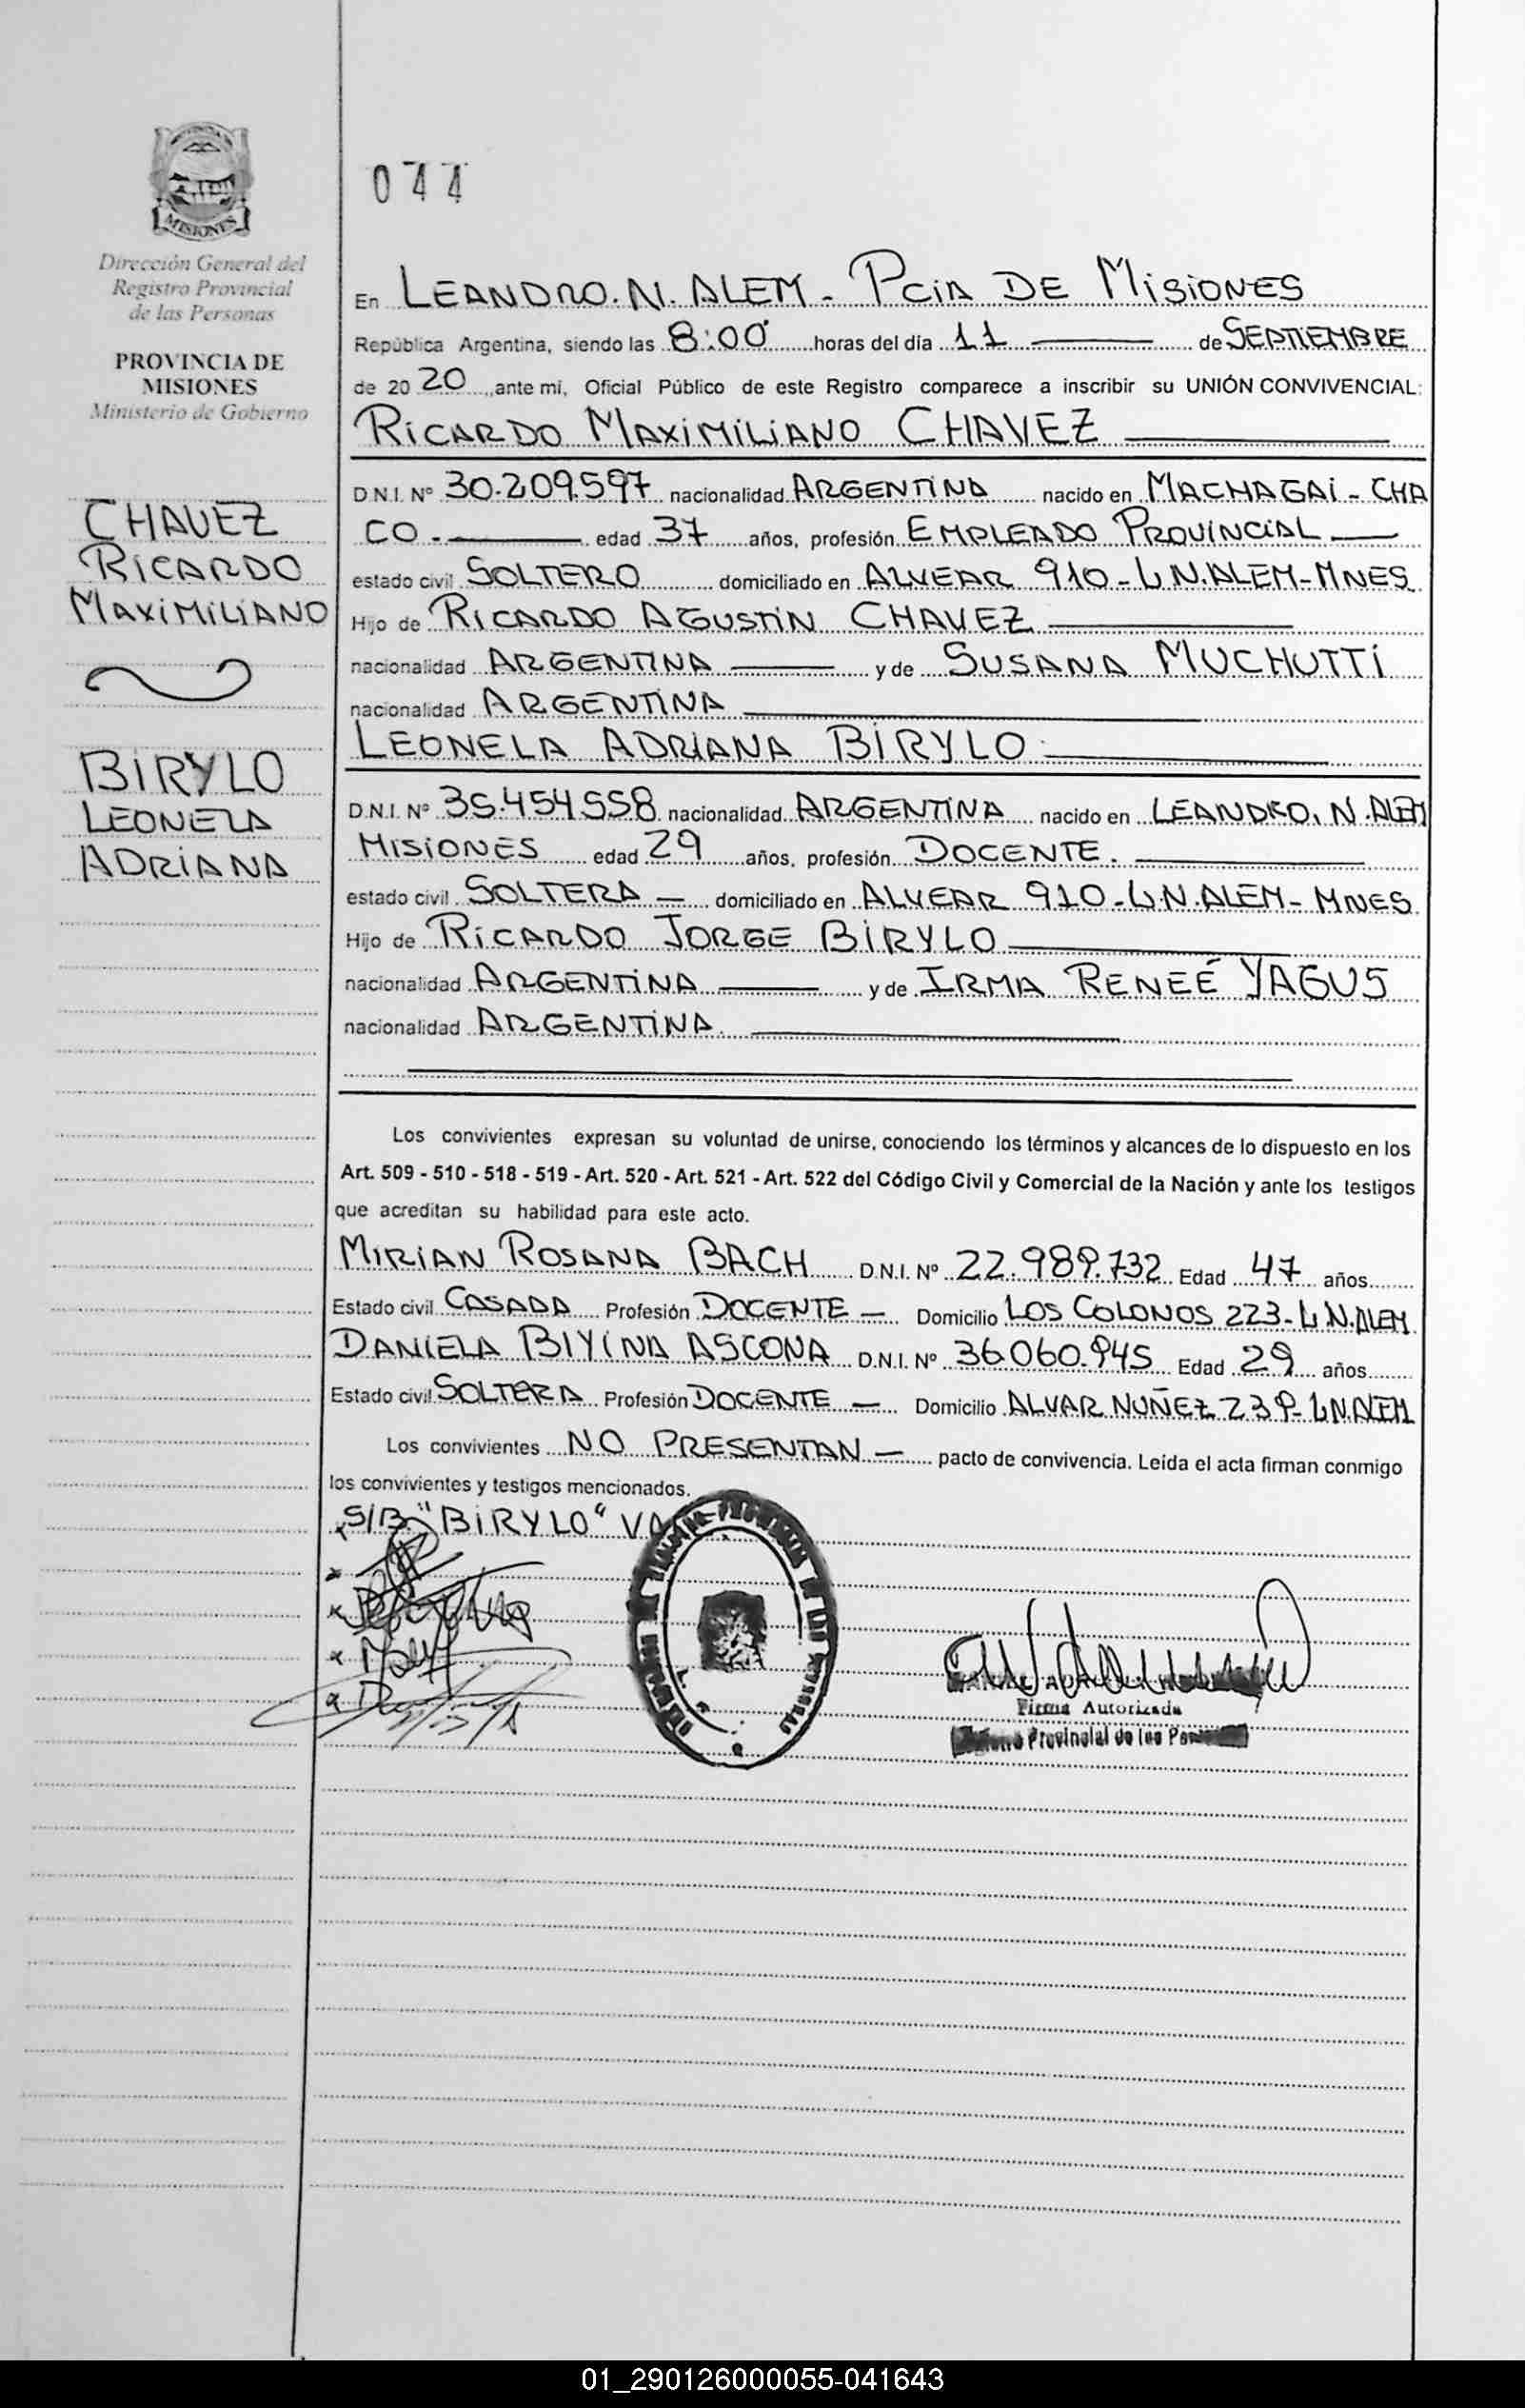 044
Dirección General del
Registro Provincial
de las Personas
PROVINCIA DE
MISIONES
Ministerio de Gobierno
CHAVEZ
RICARDO
MAXIMILIANO
BIRYLO
LEONELA
ADRIANA
En LEANDRO.N. ALEM - PCIA DE MISIONES
República Argentina, siendo las 8:00 horas del día 11 de SEPTIEMBRE
de 20 20, ante mi, Oficial Público de este Registro comparece a inscribir su UNIÓN CONVIVENCIAL:
RICARDO MAXIMILIANO CHAVEZ
D.N.I. Nº 30.209.597 nacionalidad ARGENTINA nacido en MACHAGAI - CHA
CO.- edad 37 años, profesión EMPLEADO PROVINCIAL
estado civil SOLTERO domiciliado en ALVEAR 910 - L.N.ALEM - MNES
Hijo de RICARDO AGUSTIN CHAVEZ
nacionalidad ARGENTINA y de SUSANA MUCHUTTI
nacionalidad ARGENTINA
LEONELA ADRIANA BIRYLO
D.N.I. Nº 35.454.558 nacionalidad ARGENTINA nacido en LEANDRO. N. ALEM
MISIONES edad 29 años, profesión DOCENTE.
estado civil SOLTERA - domiciliado en ALVEAR 910 - L.N. ALEM - MNES
Hijo de RICARDO JORGE BIRYLO
nacionalidad ARGENTINA y de IRMA RENEÉ YAGUS
nacionalidad ARGENTINA.
Los convivientes expresan su voluntad de unirse, conociendo los términos y alcances de lo dispuesto en los
Art. 509 - 510 - 518 - 519 - Art. 520 - Art. 521 - Art. 522 del Código Civil y Comercial de la Nación y ante los testigos
que acreditan su habilidad para este acto.
MIRIAN ROSANA BACH D.N.I. Nº 22.989.732 Edad 47 años
Estado civil CASADA Profesión DOCENTE - Domicilio LOS COLONOS 223 - L.N.ALEM
DANIELA BIYINA ASCONA D.N.I. Nº 36.060.945 Edad 29 años
Estado civil SOLTERA Profesión DOCENTE - Domicilio ALVAR NUÑEZ 239 - L.N.ALEM
Los convivientes NO PRESENTAN - pacto de convivencia. Leída el acta firman conmigo
los convivientes y testigos mencionados.
S/B "BIRYLO" VA
Firma Autorizada
Provincial de las
01_290126000055-041643